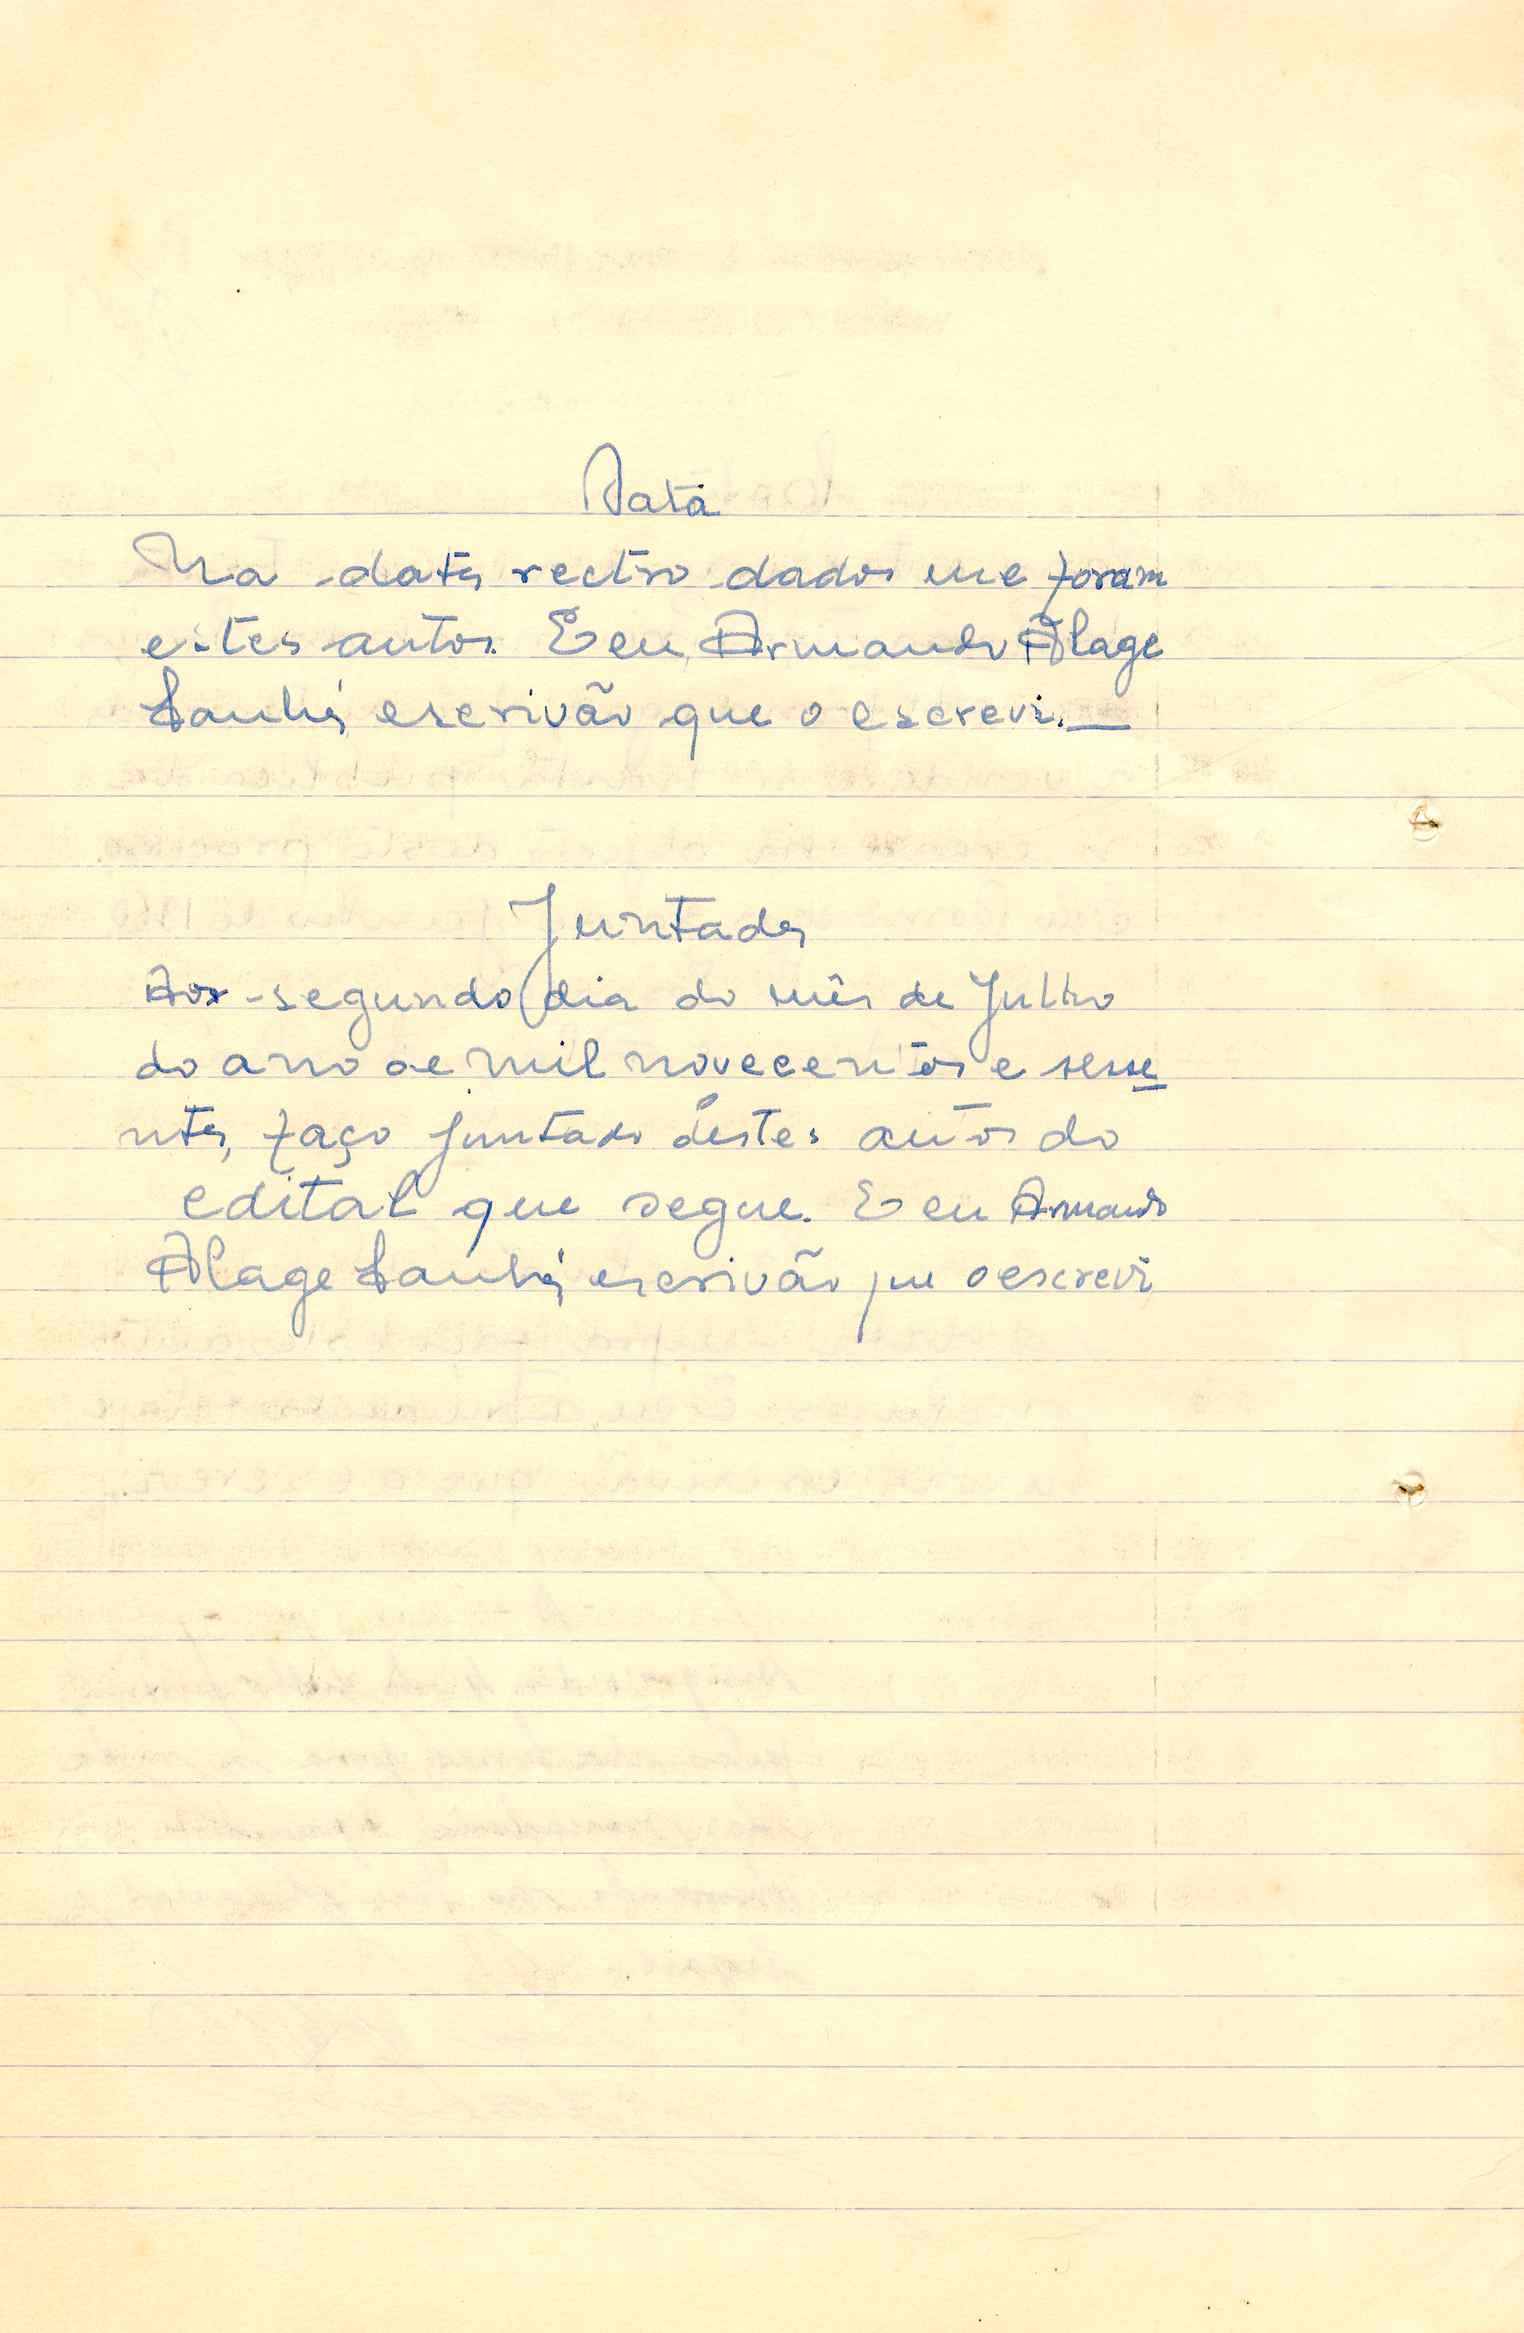 Data
Na data rectro dados me foram
estes autos. E eu, Armando Alage
Sanhá, escrivão que o escrevi. —
Juntada
Aos segundo dia do mês de Julho
do ano de mil novecentos e sesse
nta, faço juntado dêstes autos do
edital que segue. E eu Armando
Alage Sanhá, escrivão que o escrevi